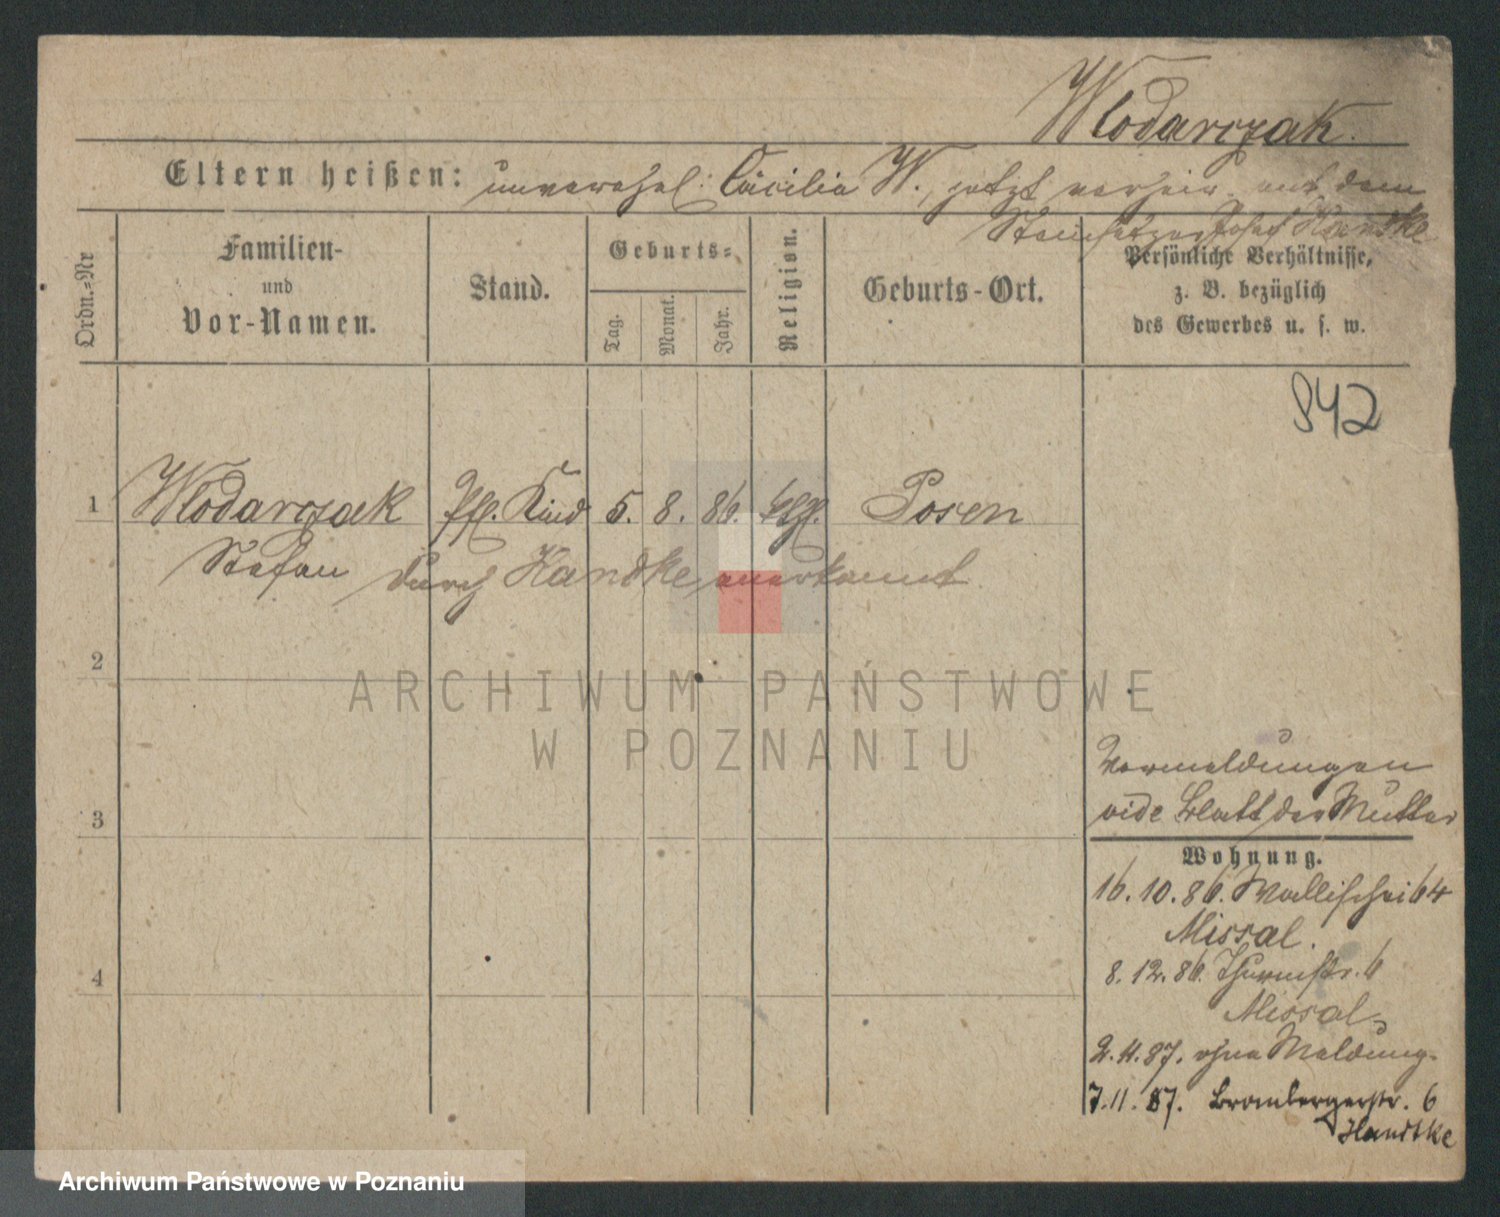 Wlodarczak.
Eltern heißen: unverehel. Cäcilia W., jetzt verheir. mit dem
Steinsetzer Josef Handke
Ordn.-Nr
Familien-
und
Vor-Namen.
Stand.
Geburts-
Tag.
Monat.
Jahr.
Religion.
Geburts-Ort.
Persönliche Verhältnisse,
z. B. bezüglich
des Gewerbes u. s. w.
842
1 Wlodarczak Pfl. Kind 5. 8. 86. Posen
Stefan durch Handke anerkannt
2
3
4
Vermeldungen
vide Blatt der Mutter
Wohnung.
16.10.86. Wallischei 64
Missal.
8.12.86. Thurmstr. 6
Missal
2.11.87. ohne Meldung.
7.11.87. Brombergerstr. 6
Handtke
ARCHIWUM PAŃSTWOWE
W POZNANIU
Archiwum Państwowe w Poznaniu